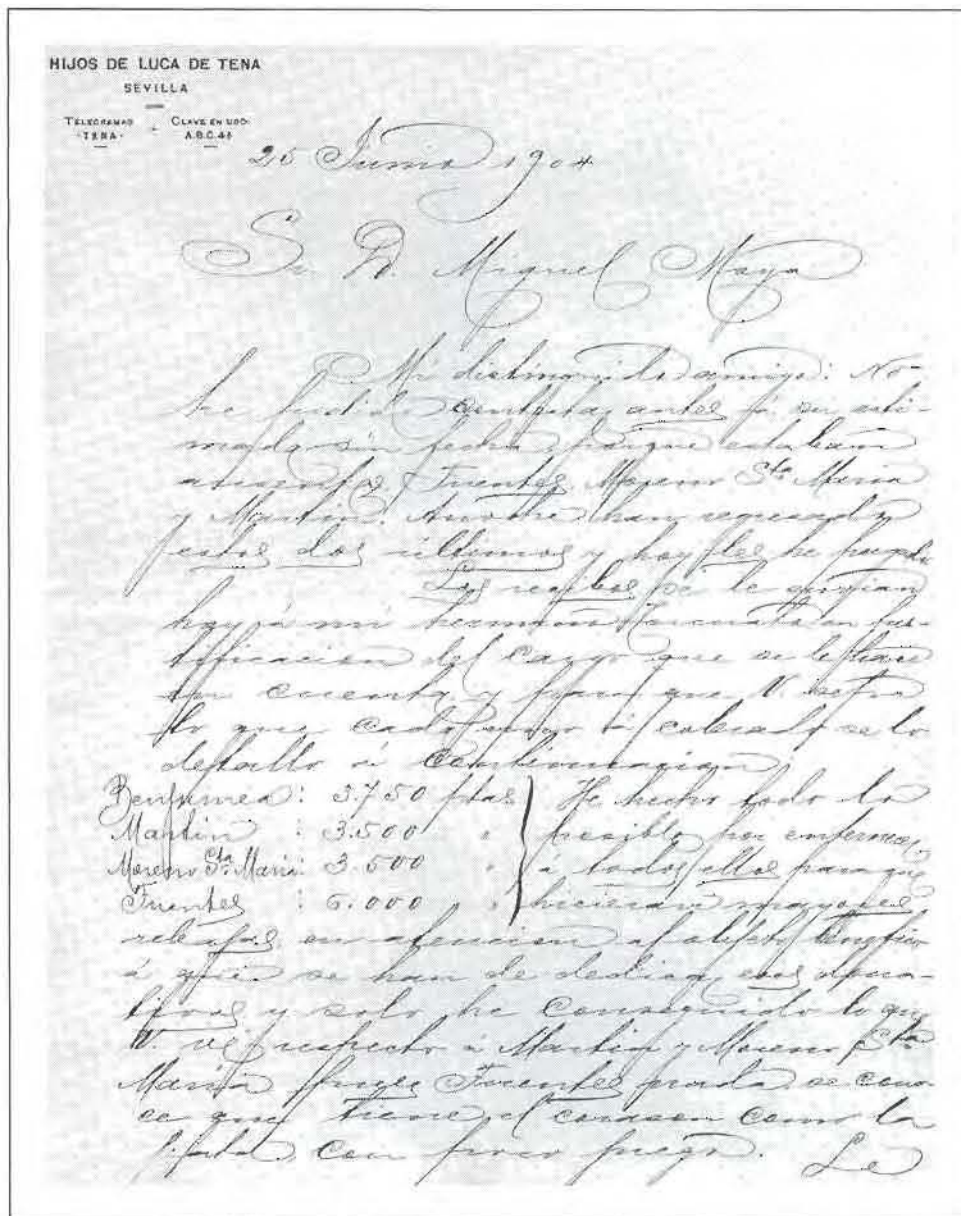 HIJOS DE LUCA DE TENA
SEVILLA
TELEGRAMAS CLAVE EN USO:
-TENA- A.B.C. 4ª
25 Junio 1904
Sr. D. Miguel Moya
Mi distinguido amigo: No
he podido contestar antes á su esti-
mada sin fecha porque estaban
ausentes Fuentes, Moreno Sta Maria
y Martin. Anoche han regresado
estos dos ultimos y hoy les he pagado
Los recibos se le envian
hoy á mi hermano Torcuato en jus-
tificacion del cargo que se le hace
en cuenta y para que V. sepa
lo que cada uno á cobrado se lo
detallo á continuacion
Benjumea: 3.750 ptas He hecho todo lo
Martin : 3.500 " posible por
Moreno Sta Maria: 3.500 " á todos ellos para que
Fuentes : 6.000 " hicieran mayores
rebajas en atencion al objeto benefico
á que se han de dedicar esos dona-
tivos y solo he conseguido lo que
V. vé respecto á Martin y Moreno Sta
Maria pues Fuentes nada se cono-
ce que tiene el corazon como la
con poco fuego. Le